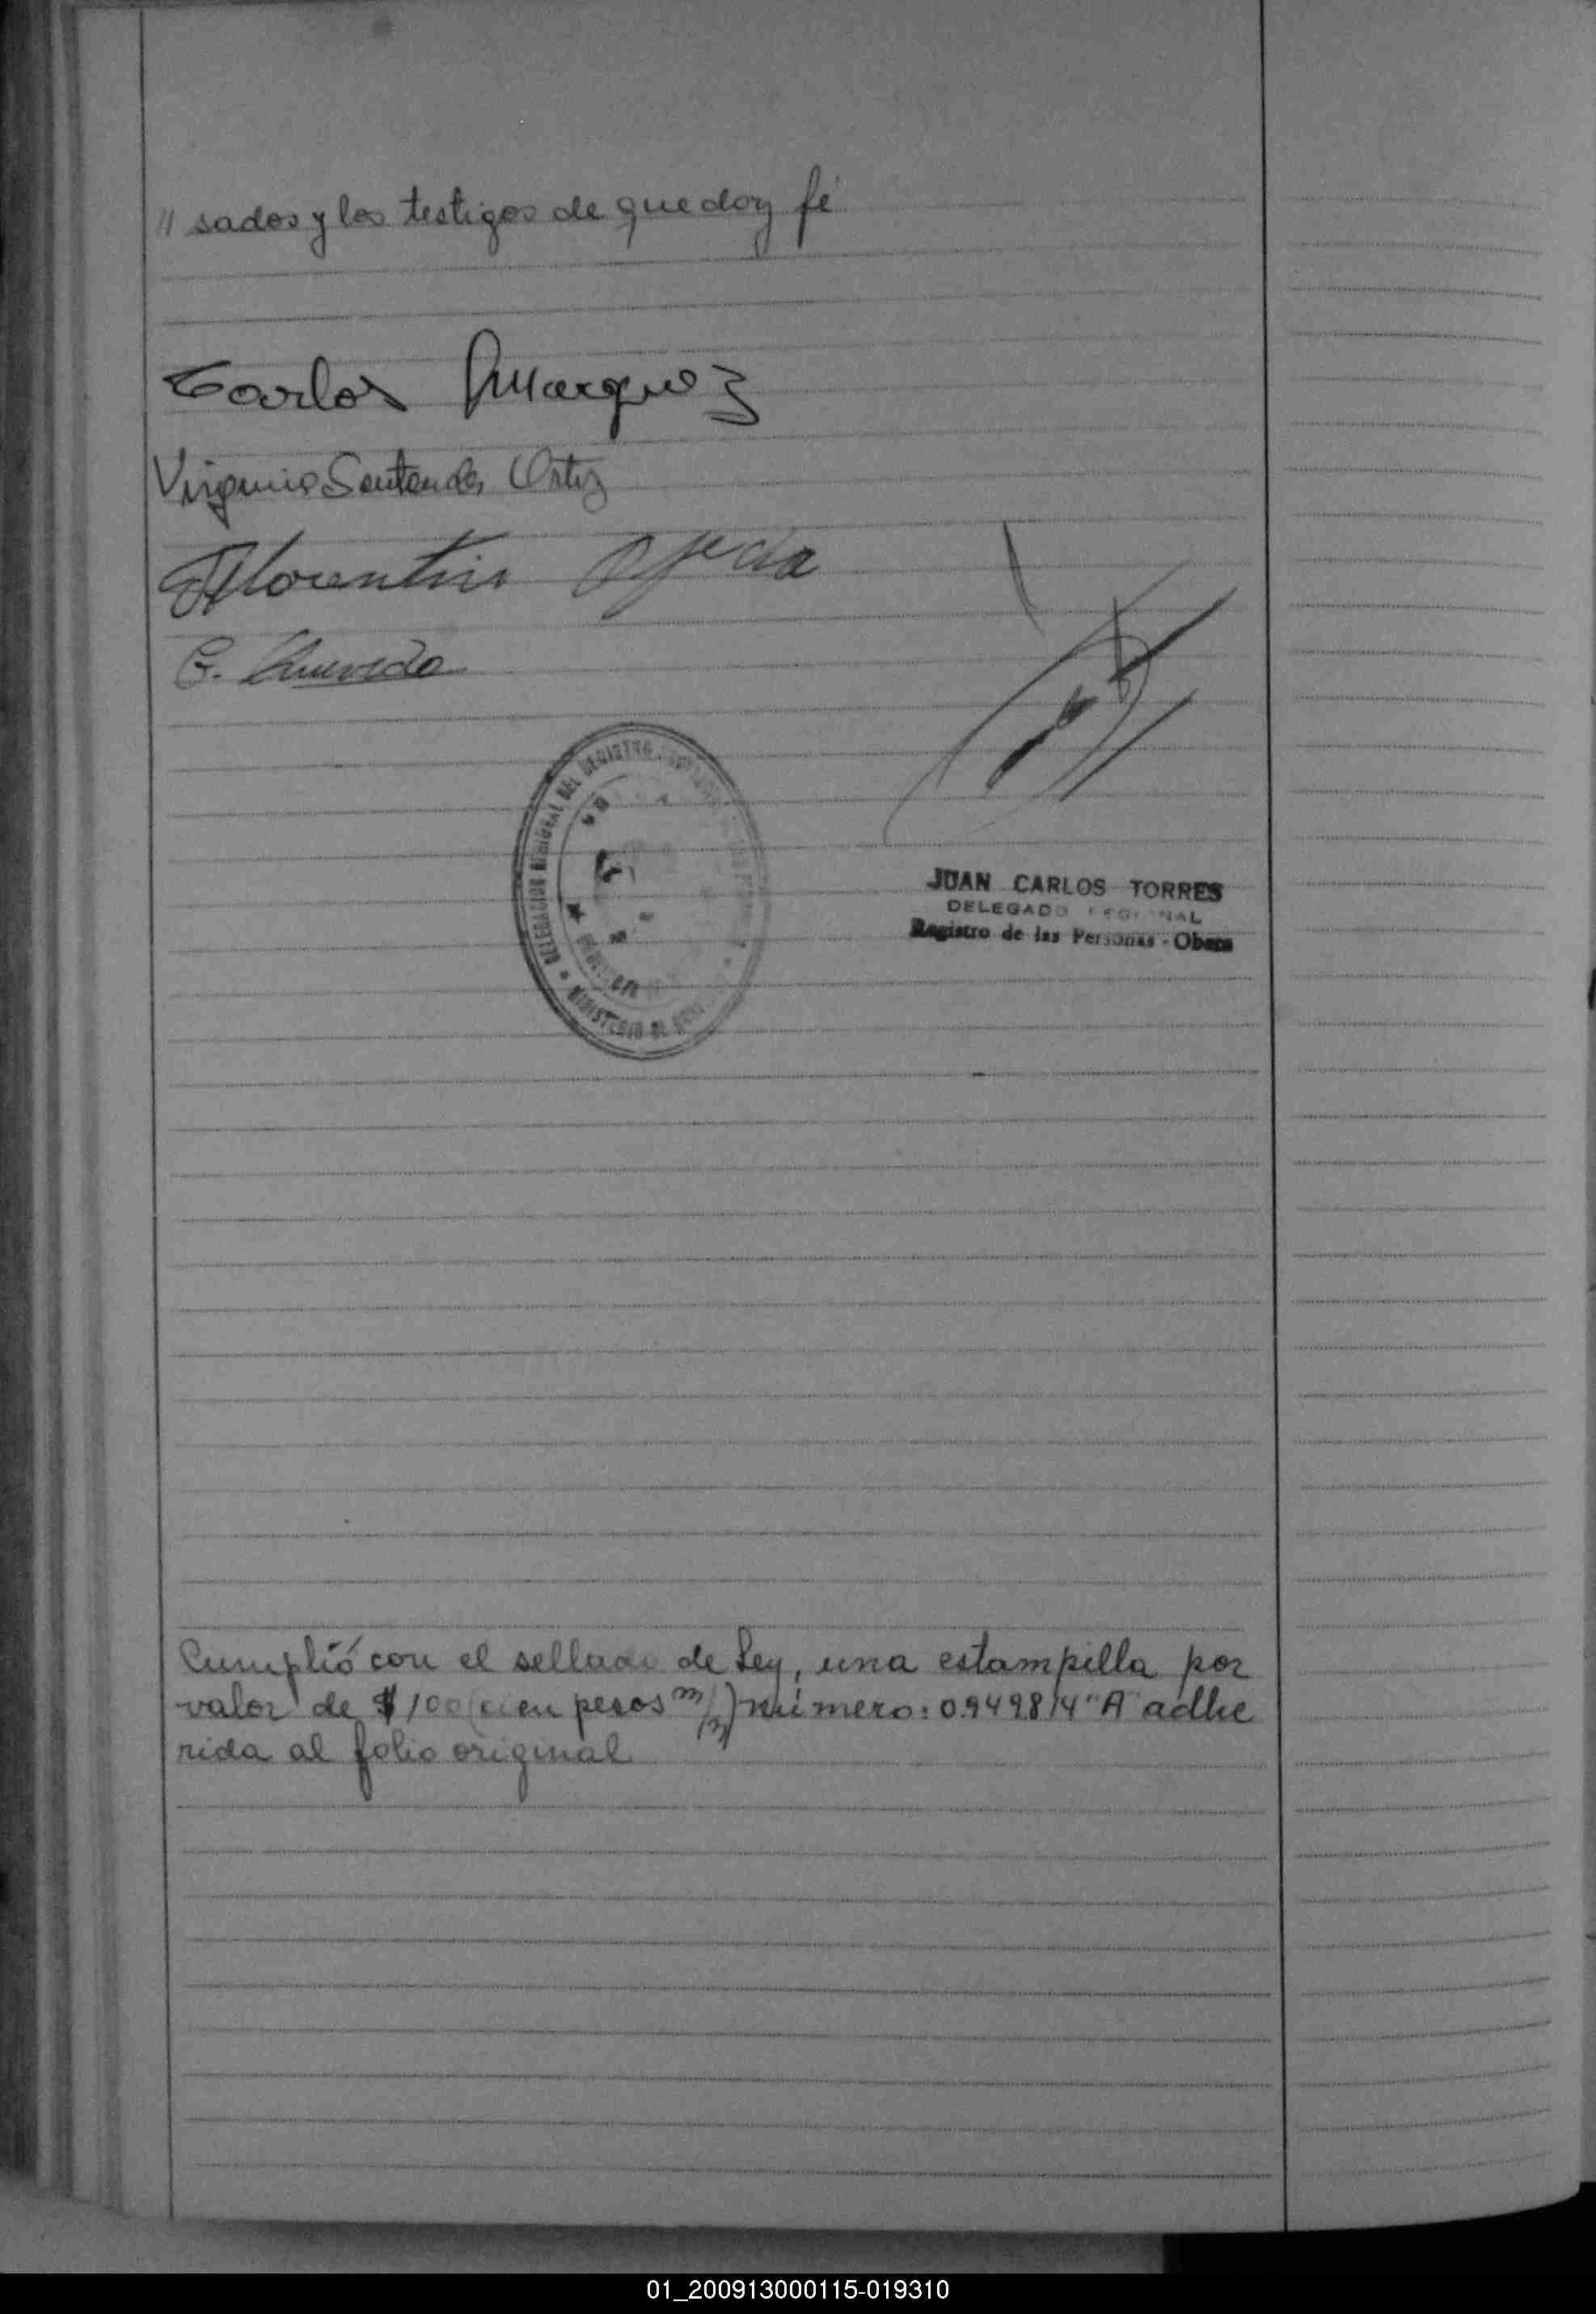 // sados y los testigos de que doy fé
Carlos Marquez
Virginio Santander Ortiz
Florentin Ojeda
G. Quevedo
DELEGACION REGIONAL DEL REGISTRO
MINISTERIO DE
JUAN CARLOS TORRES
DELEGADO REGIONAL
Registro de las Personas - Obera
Cumplió con el sellado de Ley, una estampilla por
valor de $ 100 (cien pesos m/n) número: 0949814 "A" adhe
rida al folio original
01_200913000115-019310